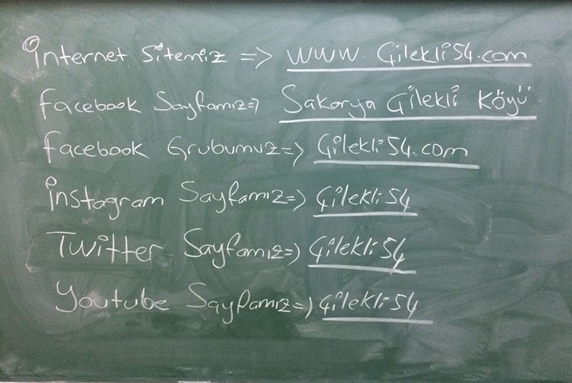 İnternet Sitemiz => www Çilekli54.com
facebook Sayfamız=> Sakarya Çilekli Köyü
facebook Grubumuz=> Çilekli54.com
İnstagram Sayfamız=> Çilekli54
Twitter Sayfamız=> Çilekli54
Youtube Sayfamız=> Çilekli54